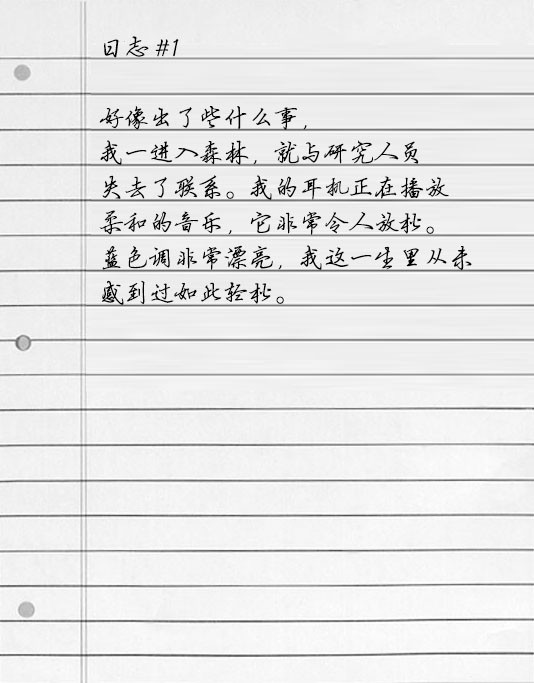 日志 #1
好像出了些什么事，
我一进入森林，就与研究人员
失去了联系。我的耳机正在播放
柔和的音乐，它非常令人放松。
蓝色调非常漂亮，我这一生里从未
感到过如此轻松。